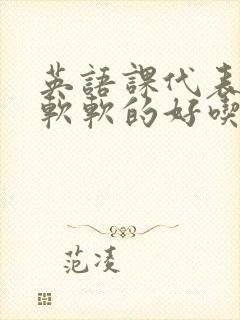 英語課代表
軟軟的好喫
范凌